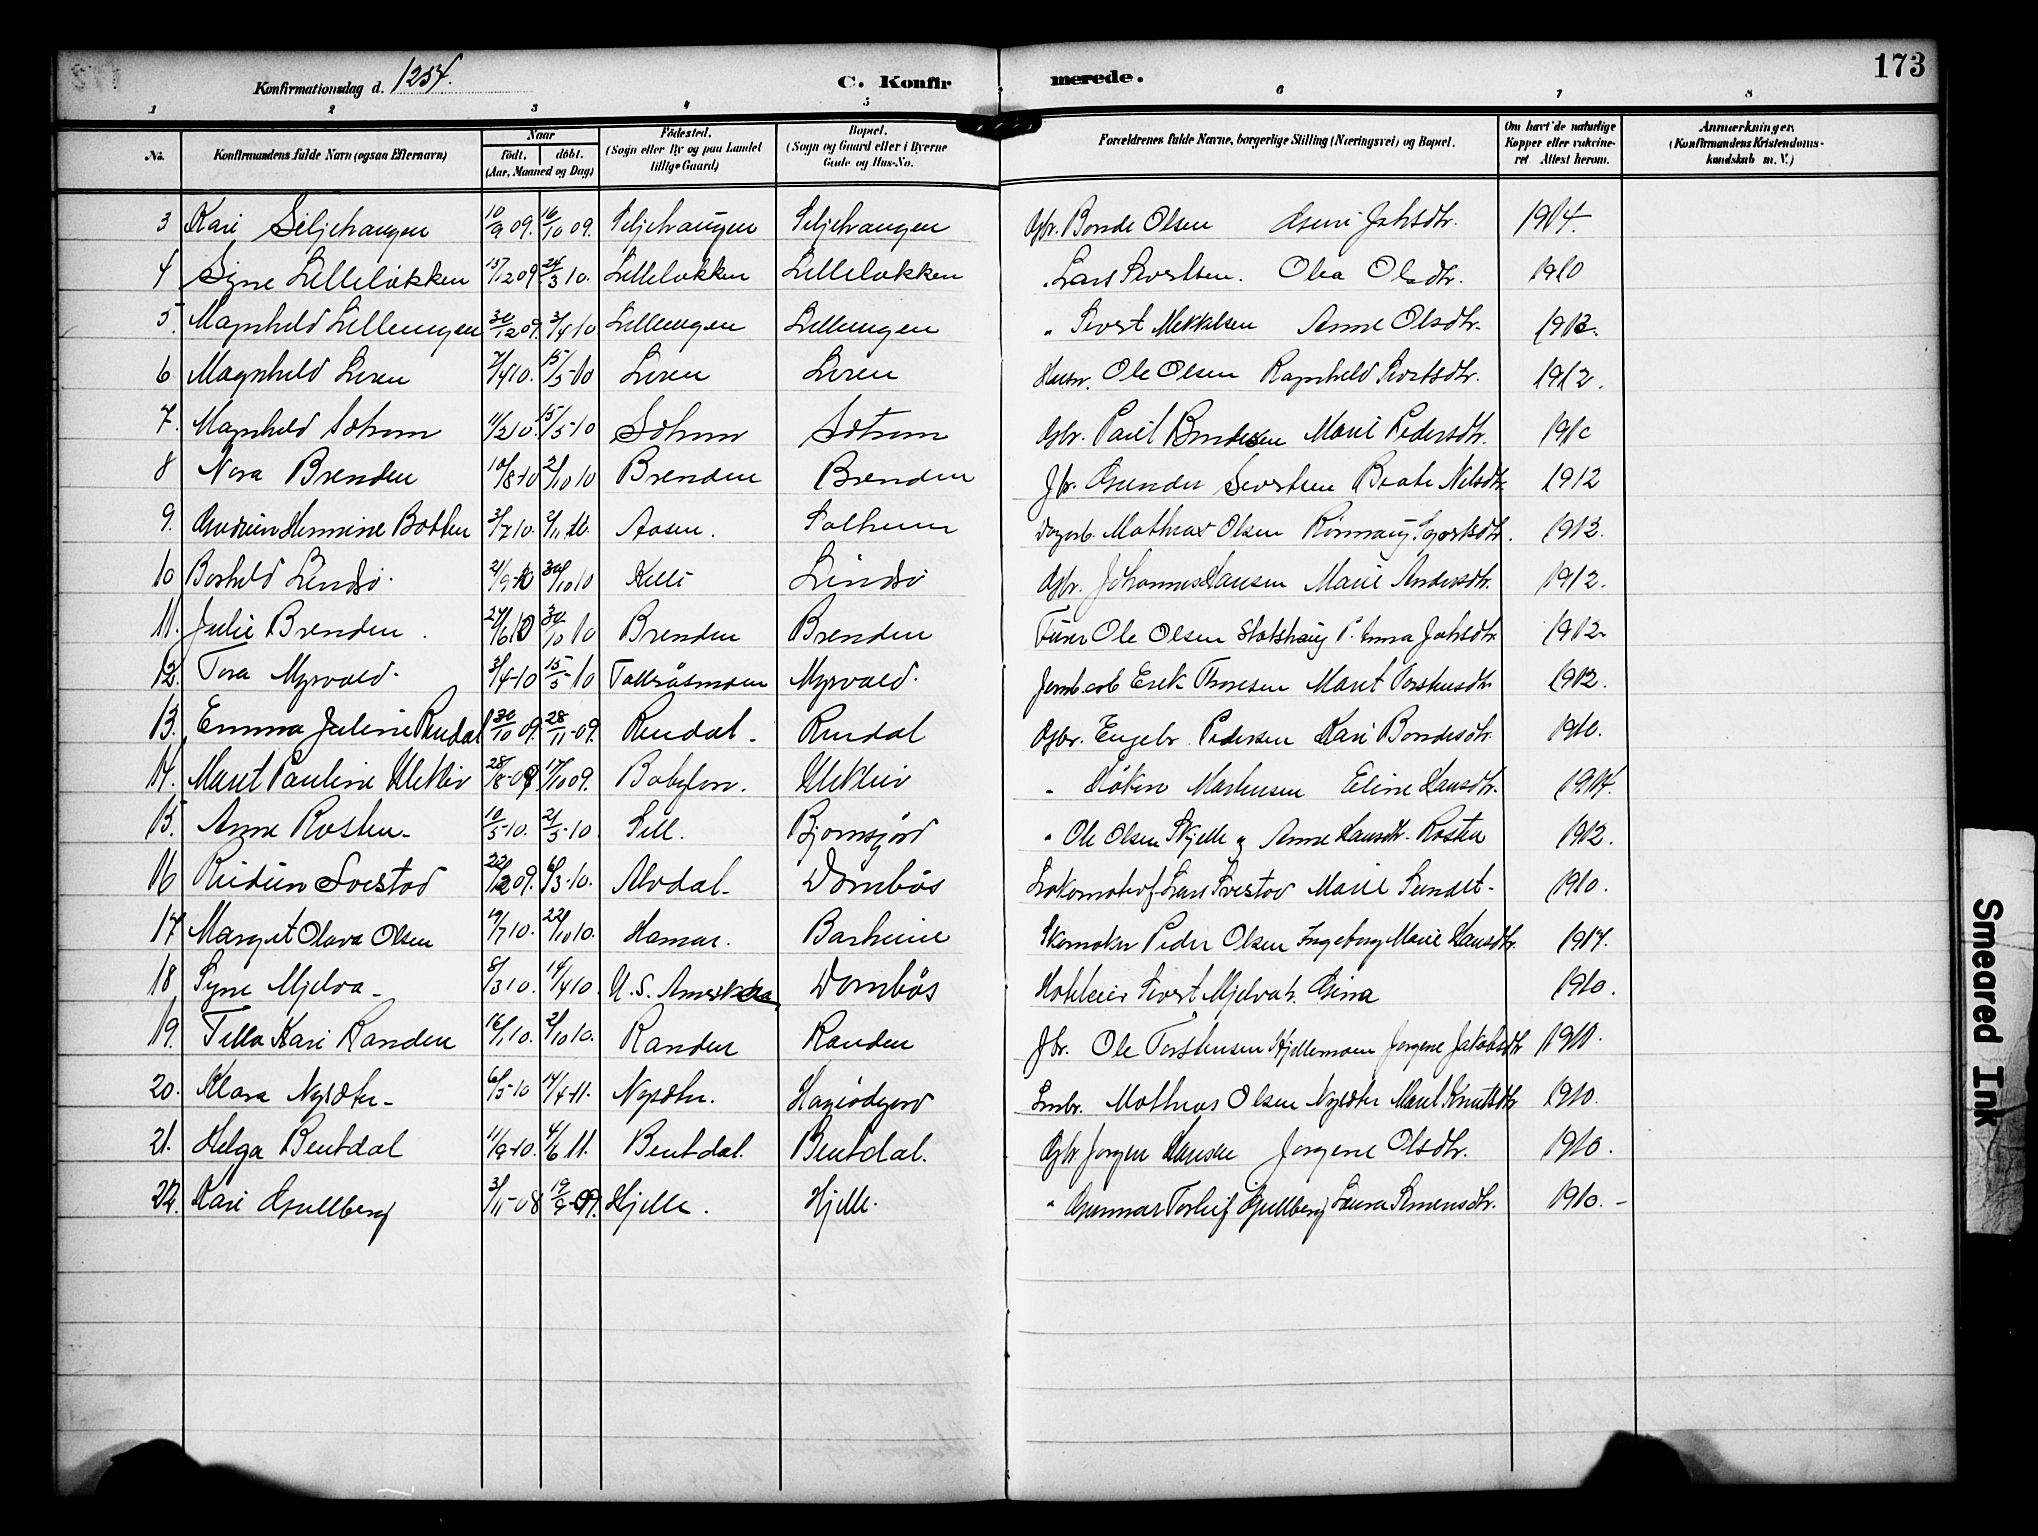 173
Konfirmationsdag d. 1254.
C. Konfirmerede.
1 2 3 4 5 6 7 8
No. Konfirmandens fulde Navn (ogsaa Efternavn) Naar født. døbt. (Aar, Maaned og Dag) Fødested. (Sogn eller By og paa Landet tillige Gaard) Bopæl. (Sogn og Gaard eller i Byerne Gade og Hus-No. Forældrenes fulde Navne, borgerlige Stilling (Næringsvei) og Bopæl. Om havt de naturlige Kopper eller vakcineret Attest herom. Anmærkninger. (Konfirmandens Kristendomskundskab m. V.)
3 Kari Seljehaugen 10/9 09. 16/10 09. Seljehaugen Seljehaugen Gbr. Bonde Olsen Guri Johsdtr. 1914.
4 Syne Lilleløkken 15/12 09 24/3 10. Lilleløkken Lilleløkken " Lars Sivertsen. Olea Olsdtr. 1910
5. Magnhild Lilleengen 30/12 09. 3/4 10 Lilleengen Lillengen " Sivert Mikkelsen Anne Olsdtr. 1913.
6 Magnhild Lien 7/4 10. 15/5-10 Lien Lien Husm. Ole Olsen Ragnhild Sivertsdtr. 1912.
7. Magnhild Sætrom 11/2 10. 15/5-10 Sætrom Sætrom Gbr. Paul Bondesen Marie Pedersdtr. 1910
8 Nora Brenden 10/8-10 2/10 10 Brenden Brenden Jbr. Gunder Sivertsen Beate Nilsdtr. 1912
9. Gudrun Hermine Botten 3/7 10. 2/11 10. Aasen. Solheim Dagarb. Mathias Olsen Rønnaug Syvertsdtr. 1912.
10 Borhild Lindsø. 21/9-10 30/10 10 Killi Lindsø Gbr. Johannes Hansen Marie Andersdtr. 1912.
11. Julie Brenden. 24/6 10 30/10 10 Brenden Brenden Ole Olsen Slotshaug P. Anna Johsdtr. 1912.
12. Tora Myrvold. 3/4-10 15/5-10 Tallråsmoen Myrvold. Jernb.arb Erik Thoresen Marit Torstensdtr. 1912.
13. Emma Juline Rendal 30/10 09. 28/11-09. Rendal. Rendal Gbr. Engebr. Pedersen Kari Bondesdtr. 1910.
14. Marit Pauline Ulekleiv 28/8-09 17/10 09. Babylon. Ulekleiv " Håken Mathisen Eline Hansdtr. 1914.
15. Anne Rosten. 10/5-10. 21/5-10 Sell. Bjornsgård " Ole Olsen Skjelle og Anne Hansdtr. Rosten 1912.
16 Reidun Svestad 22/12 09. 6/3-10. Alvdal. Dombås Lokomotivf. Lars Svestad Marie Sundet. 1910.
17 Margit Olava Olsen 19/7 10. 22/10 10. Hamar. Barheim Skomaker Peder Olsen Ingeborg Marie Hansdtr. 1917.
18 Syne Mjelva. 8/3 10. 14/4 10. U. S. Amerika Dombås Hoteleier Sivert Mjelva h. Gina 1910.
19. Tella Kari Randen 16/1 10. 2/10 10. Randen Randen Jbr. Ole Torstensen Hjellemoen Jørgene Jakobsdtr 1911.
20. Klara Nysæter. 6/5-10 17/4-11. Nysæter. Smbr. Mathias Olsen Nysæter Marit Knutsdtr 1910.
21. Helga Bentdal 11/9-10. 4/6 11. Bentdal. Bentdal. Gbr Jørgen Hansen Jørgene Olsdtr. 1910.
22. Kari Gullberg 3/11-08 19/9-09. Hjelle. Hjelle. " Gunnar Torleif Gullberg Laura Simensdtr. 1910.-
Smeared Ink